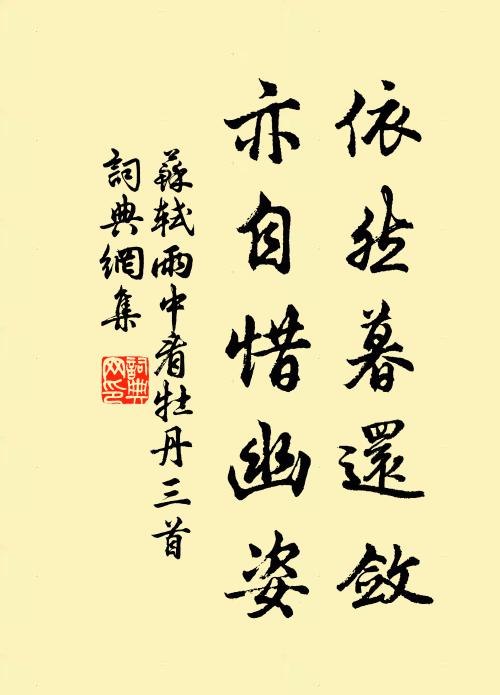 依然暮還斂
亦自惜幽姿
蘇軾雨中看牡丹三首
詞典網集
詞典網印